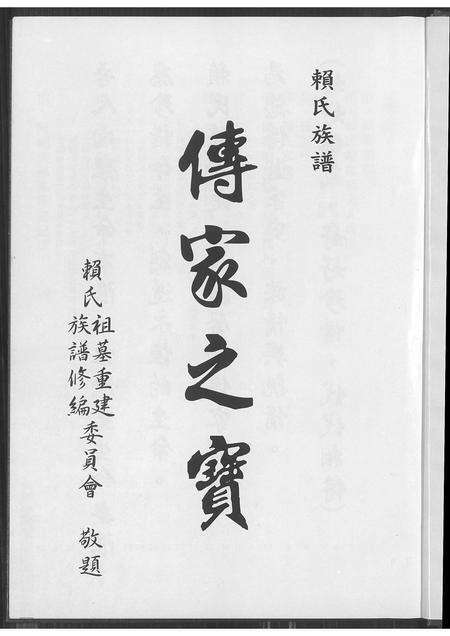 賴氏族譜
傳家之寶
賴氏
祖墓重建
族譜修編
委員會 敬題